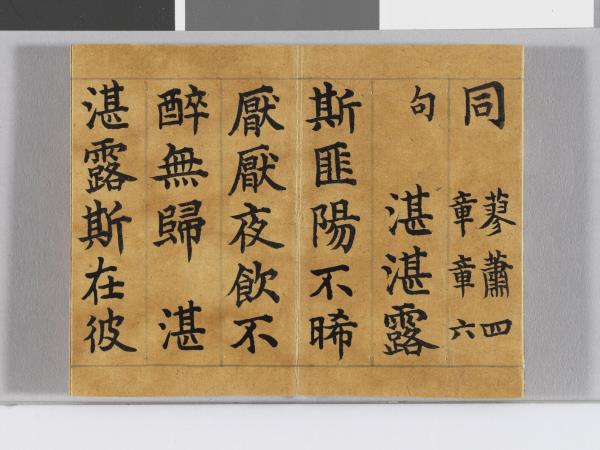 同 蓼蕭四
章章六
句 湛湛露
斯匪陽不晞
厭厭夜飲不
醉無歸 湛
湛露斯在彼